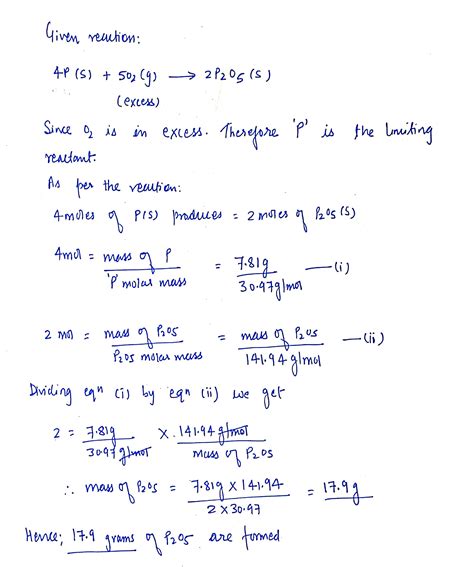 Given reaction:
4P (s) + 5O2 (g) ⟶ 2P2O5 (s)
(excess)
Since O2 is in excess. Therefore 'P' is the limiting
reactant.
As per the reaction:
4 moles of P(s) produces = 2 moles of P2O5 (s)
4mol = mass of P / 'P' molar mass = 7.81g / 30.97g/mol —(i)
2 mol = mass of P2O5 / P2O5 molar mass = mass of P2O5 / 141.94 g/mol —(ii)
Dividing eqn (i) by eqn (ii) we get
2 = 7.81g / 30.97 g/mol × 141.94 g/mol / mass of P2O5
∴ mass of P2O5 = 7.81g × 141.94 / 2 × 30.97 = 17.9 g
Hence; 17.9 grams of P2O5 are formed